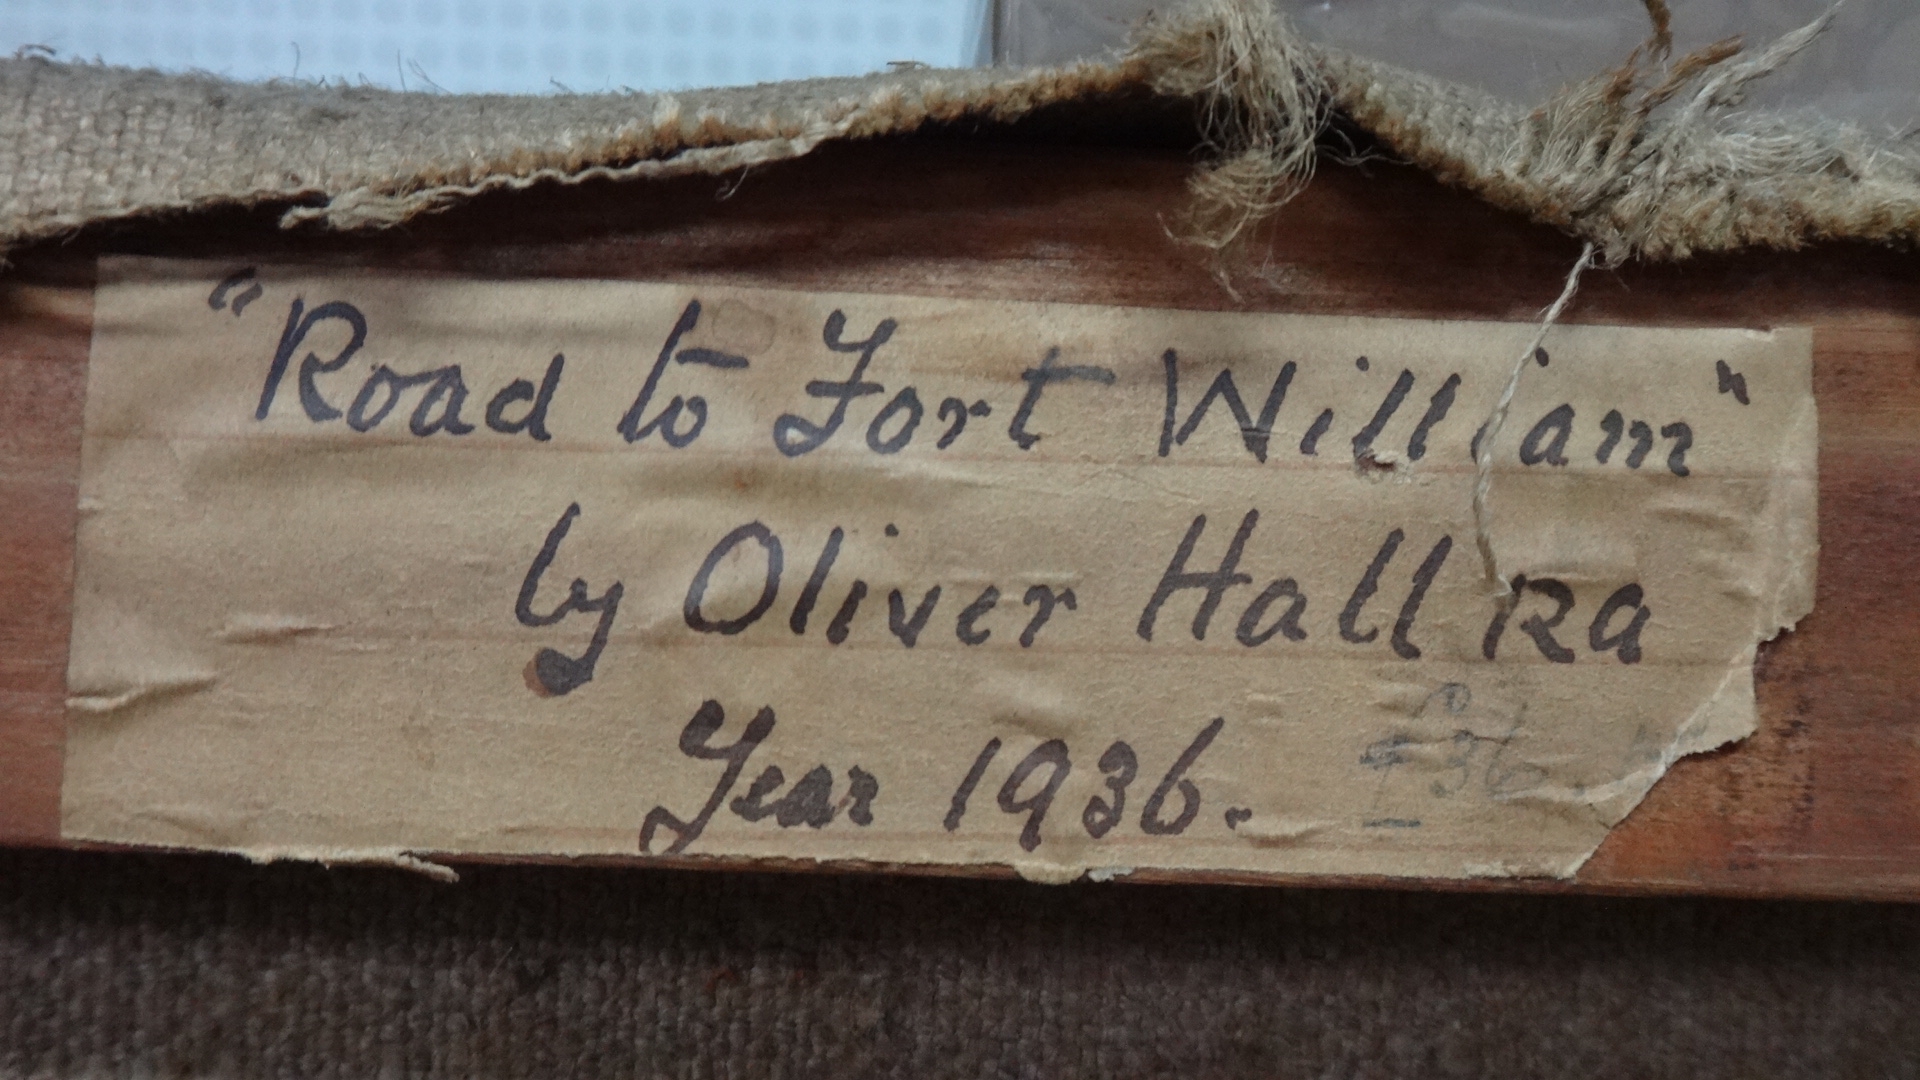 "Road to Fort William"
by Oliver Hall RA
Year 1936.